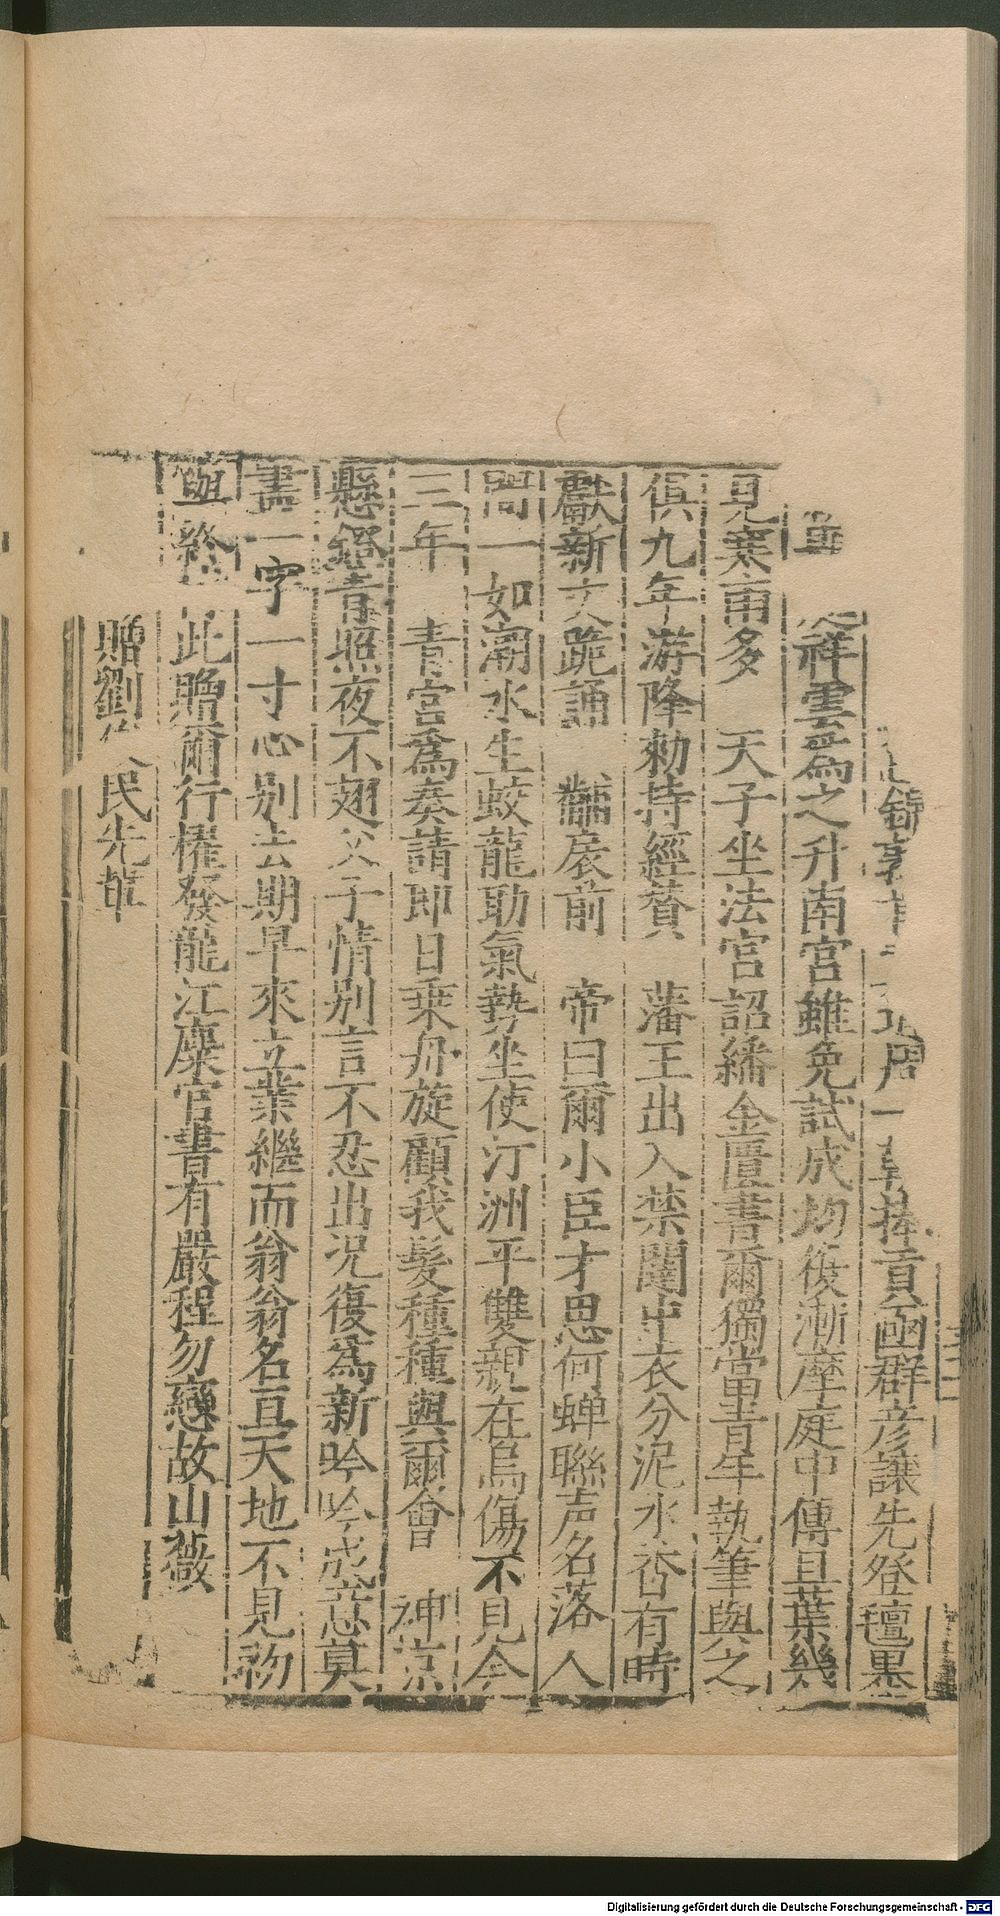 捧貢函群彥讓先登氊
祥雲爲之升南宮雖免試成均復漸摩庭中傳且葉幾
見寒甭多　天子坐法宮詔繙金匱書爾獨當青年執筆與之
俱九年游降勑持經賛　藩王出入禁闥中衣分泥水沓有時
獻新文跪誦　黼扆前　帝曰爾小臣才思何蟬聯声名落人
間一如潮水生蛟龍助氣勢坐使汀洲平雙親在烏傷不見今
三年　青宮爲奏請即日乗舟旋顧我髮種種與爾會　神京
懸鐙青照夜不翅父子情别言不忍出况復爲新吟吟成意莫
盡一字一寸心别去期早來立業繼而翁翁名亘天地不見物
與終此贈爾行櫂發龍江麋官書有嚴程勿戀故山薇
贈劉　民先輩
Digitalisierung gefördert durch die Deutsche Forschungsgemeinschaft - DFG